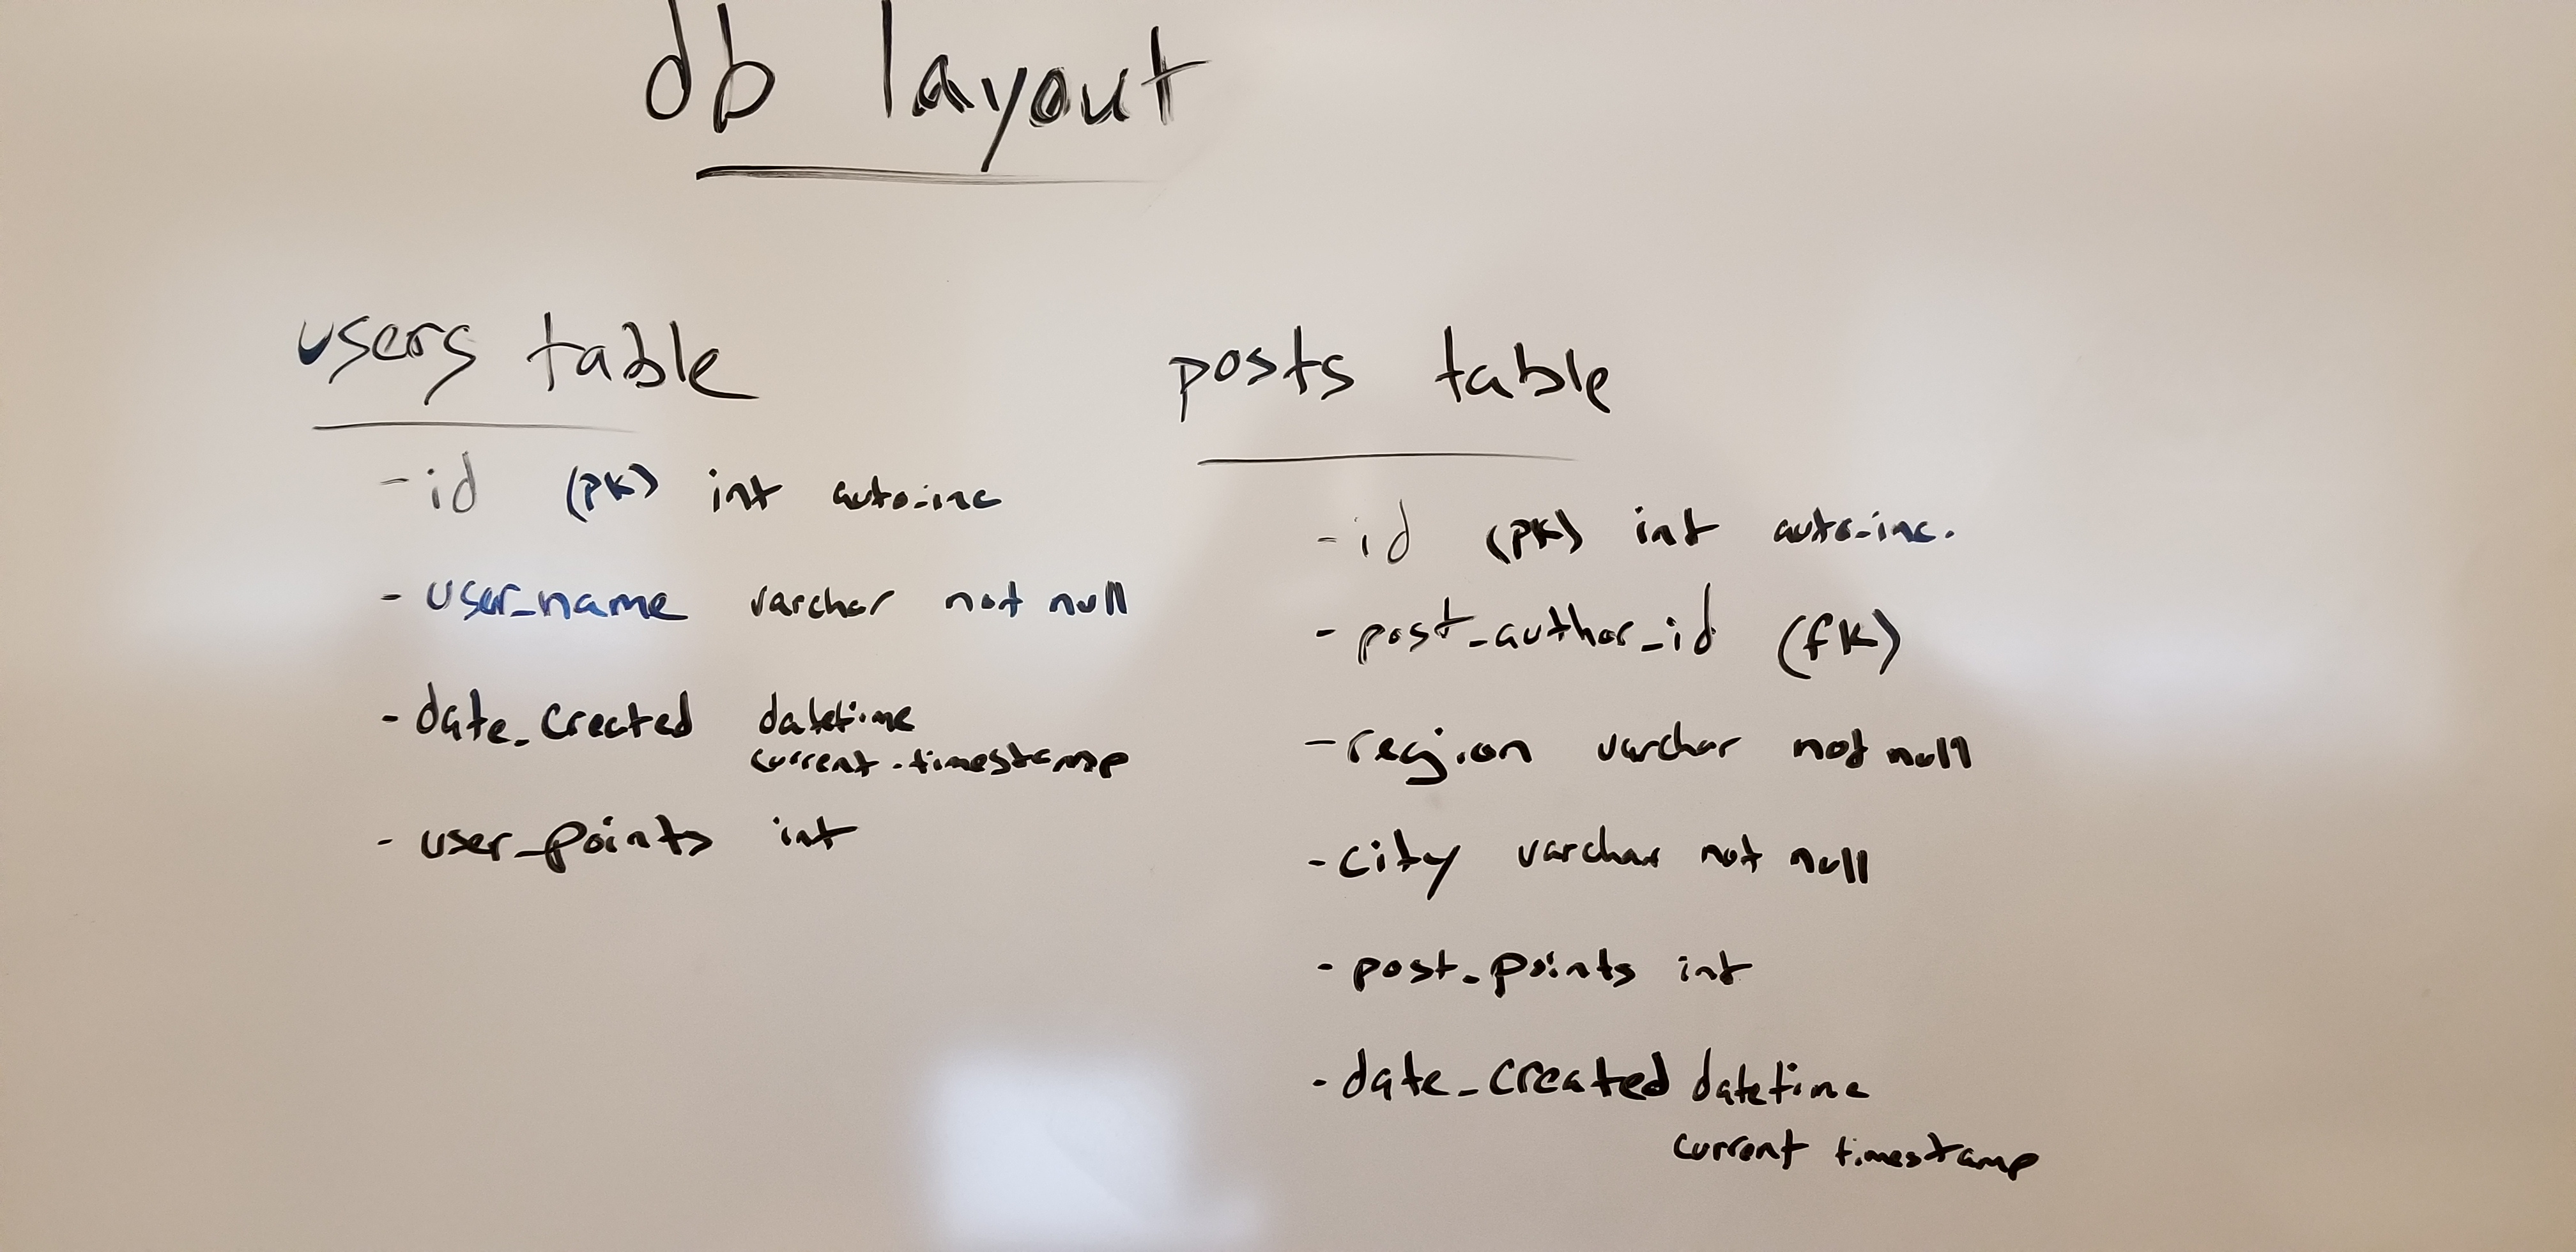 db layout
users table
- id (pk) int auto-inc
- user_name varchar not null
- date_created datetime
current-timestamp
- user_points int
posts table
- id (pk) int auto-inc.
- post_author_id (fk)
- region varchar not null
- city varchar not null
- post_points int
- date_created datetime
current timestamp